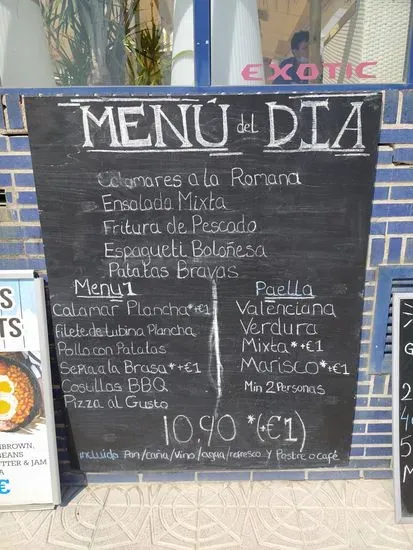 EXOTIC
MENÚ del DIA
Calamares a la Romana
Ensalada Mixta
Fritura de Pescado
Espagueti Boloñesa
Patatas Bravas
Menu 1
Calamar Plancha *+€1
Filete de tubina Plancha
Pollo con Patatas
Sepia a la Brasa *+€1
Costillas BBQ
Pizza al Gusto
Paella
Valenciana
Verdura
Mixta *+€1
Marisco *+€1
Min 2 Personas
10,90 *(+€1)
incluido Pan/caña/Vino/agua/refresco y Postre o café
S
TS
BROWN,
BEANS
TTER & JAM
€